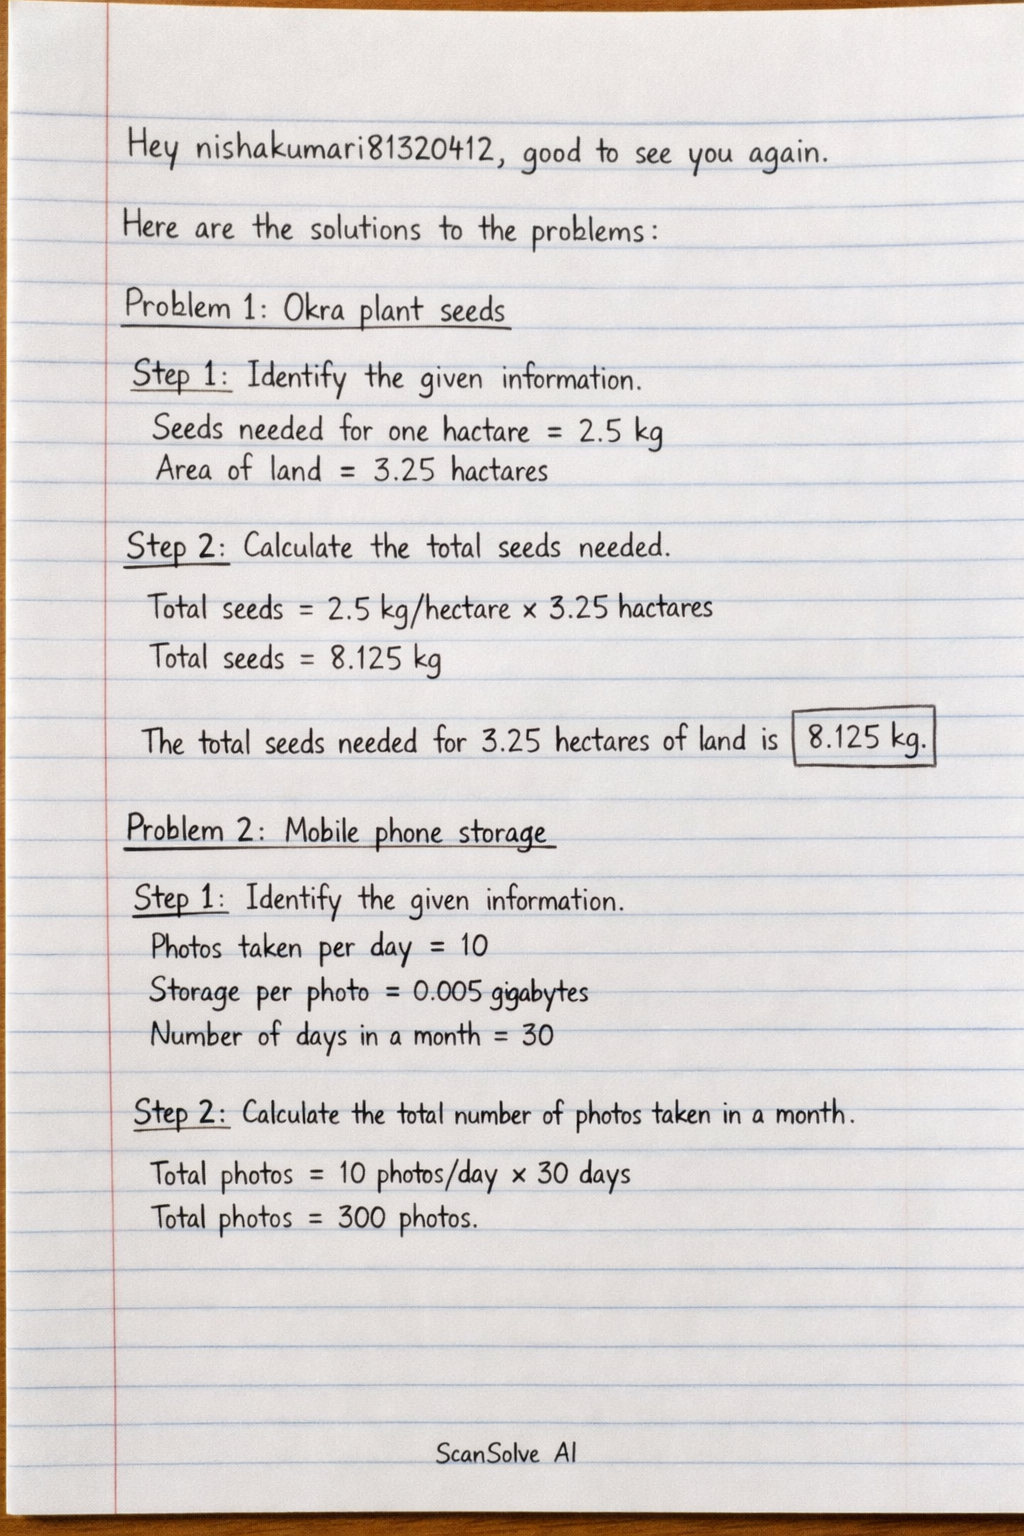 Hey nishakumari81320412, good to see you again.
Here are the solutions to the problems:
Problem 1: Okra plant seeds
Step 1: Identify the given information.
Seeds needed for one hactare = 2.5 kg
Area of land = 3.25 hactares
Step 2: Calculate the total seeds needed.
Total seeds = 2.5 kg/hectare × 3.25 hactares
Total seeds = 8.125 kg
The total seeds needed for 3.25 hectares of land is 8.125 kg.
Problem 2: Mobile phone storage
Step 1: Identify the given information.
Photos taken per day = 10
Storage per photo = 0.005 gigabytes
Number of days in a month = 30
Step 2: Calculate the total number of photos taken in a month.
Total photos = 10 photos/day × 30 days
Total photos = 300 photos.
ScanSolve AI